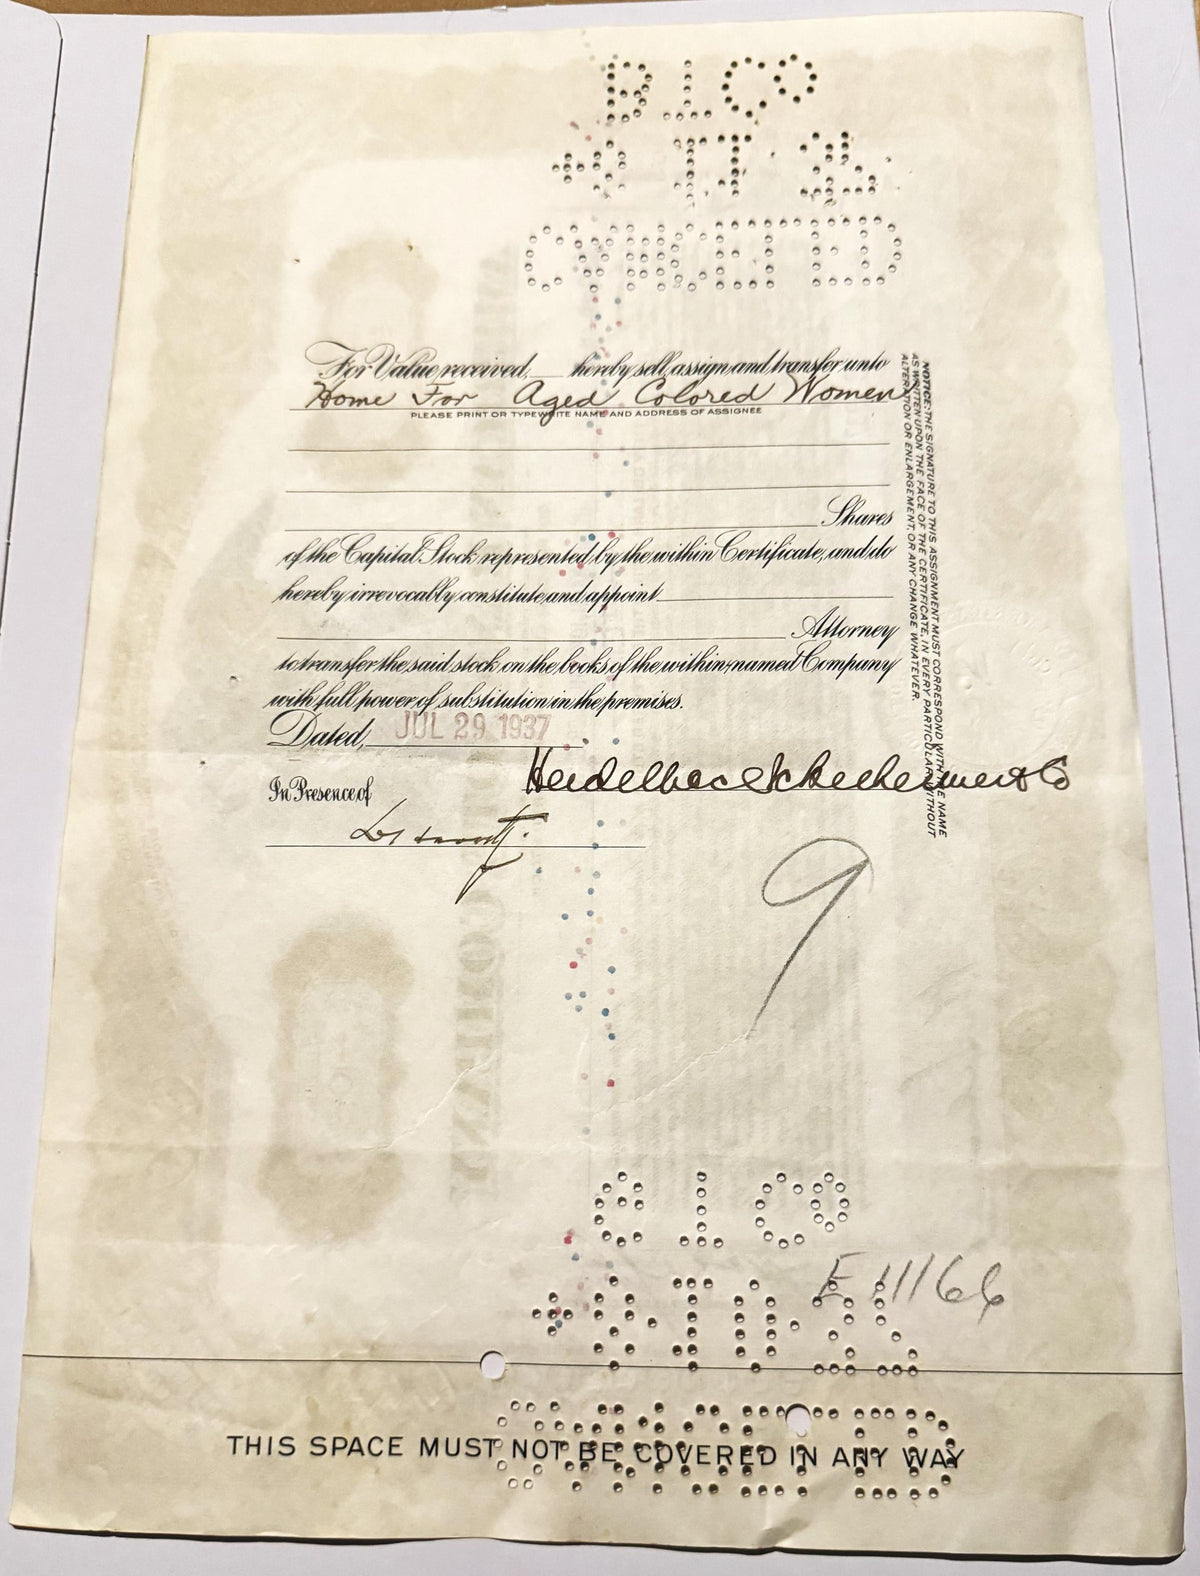 B T Co
CANCELLED
For Value received, ___ hereby sell, assign and transfer unto
Home For Aged Colored Women
PLEASE PRINT OR TYPEWRITE NAME AND ADDRESS OF ASSIGNEE
Shares
of the Capital Stock represented by the within Certificate, and do
hereby irrevocably constitute and appoint
Attorney
to transfer the said stock on the books of the within-named Company
with full power of substitution in the premises.
Dated, JUL 29 1937
In Presence of
NOTICE: THE SIGNATURE TO THIS ASSIGNMENT MUST CORRESPOND WITH THE NAME
AS WRITTEN UPON THE FACE OF THE CERTIFICATE, IN EVERY PARTICULAR, WITHOUT
ALTERATION OR ENLARGEMENT, OR ANY CHANGE WHATEVER.
9
B T Co
E 11166
CANCELLED
THIS SPACE MUST NOT BE COVERED IN ANY WAY